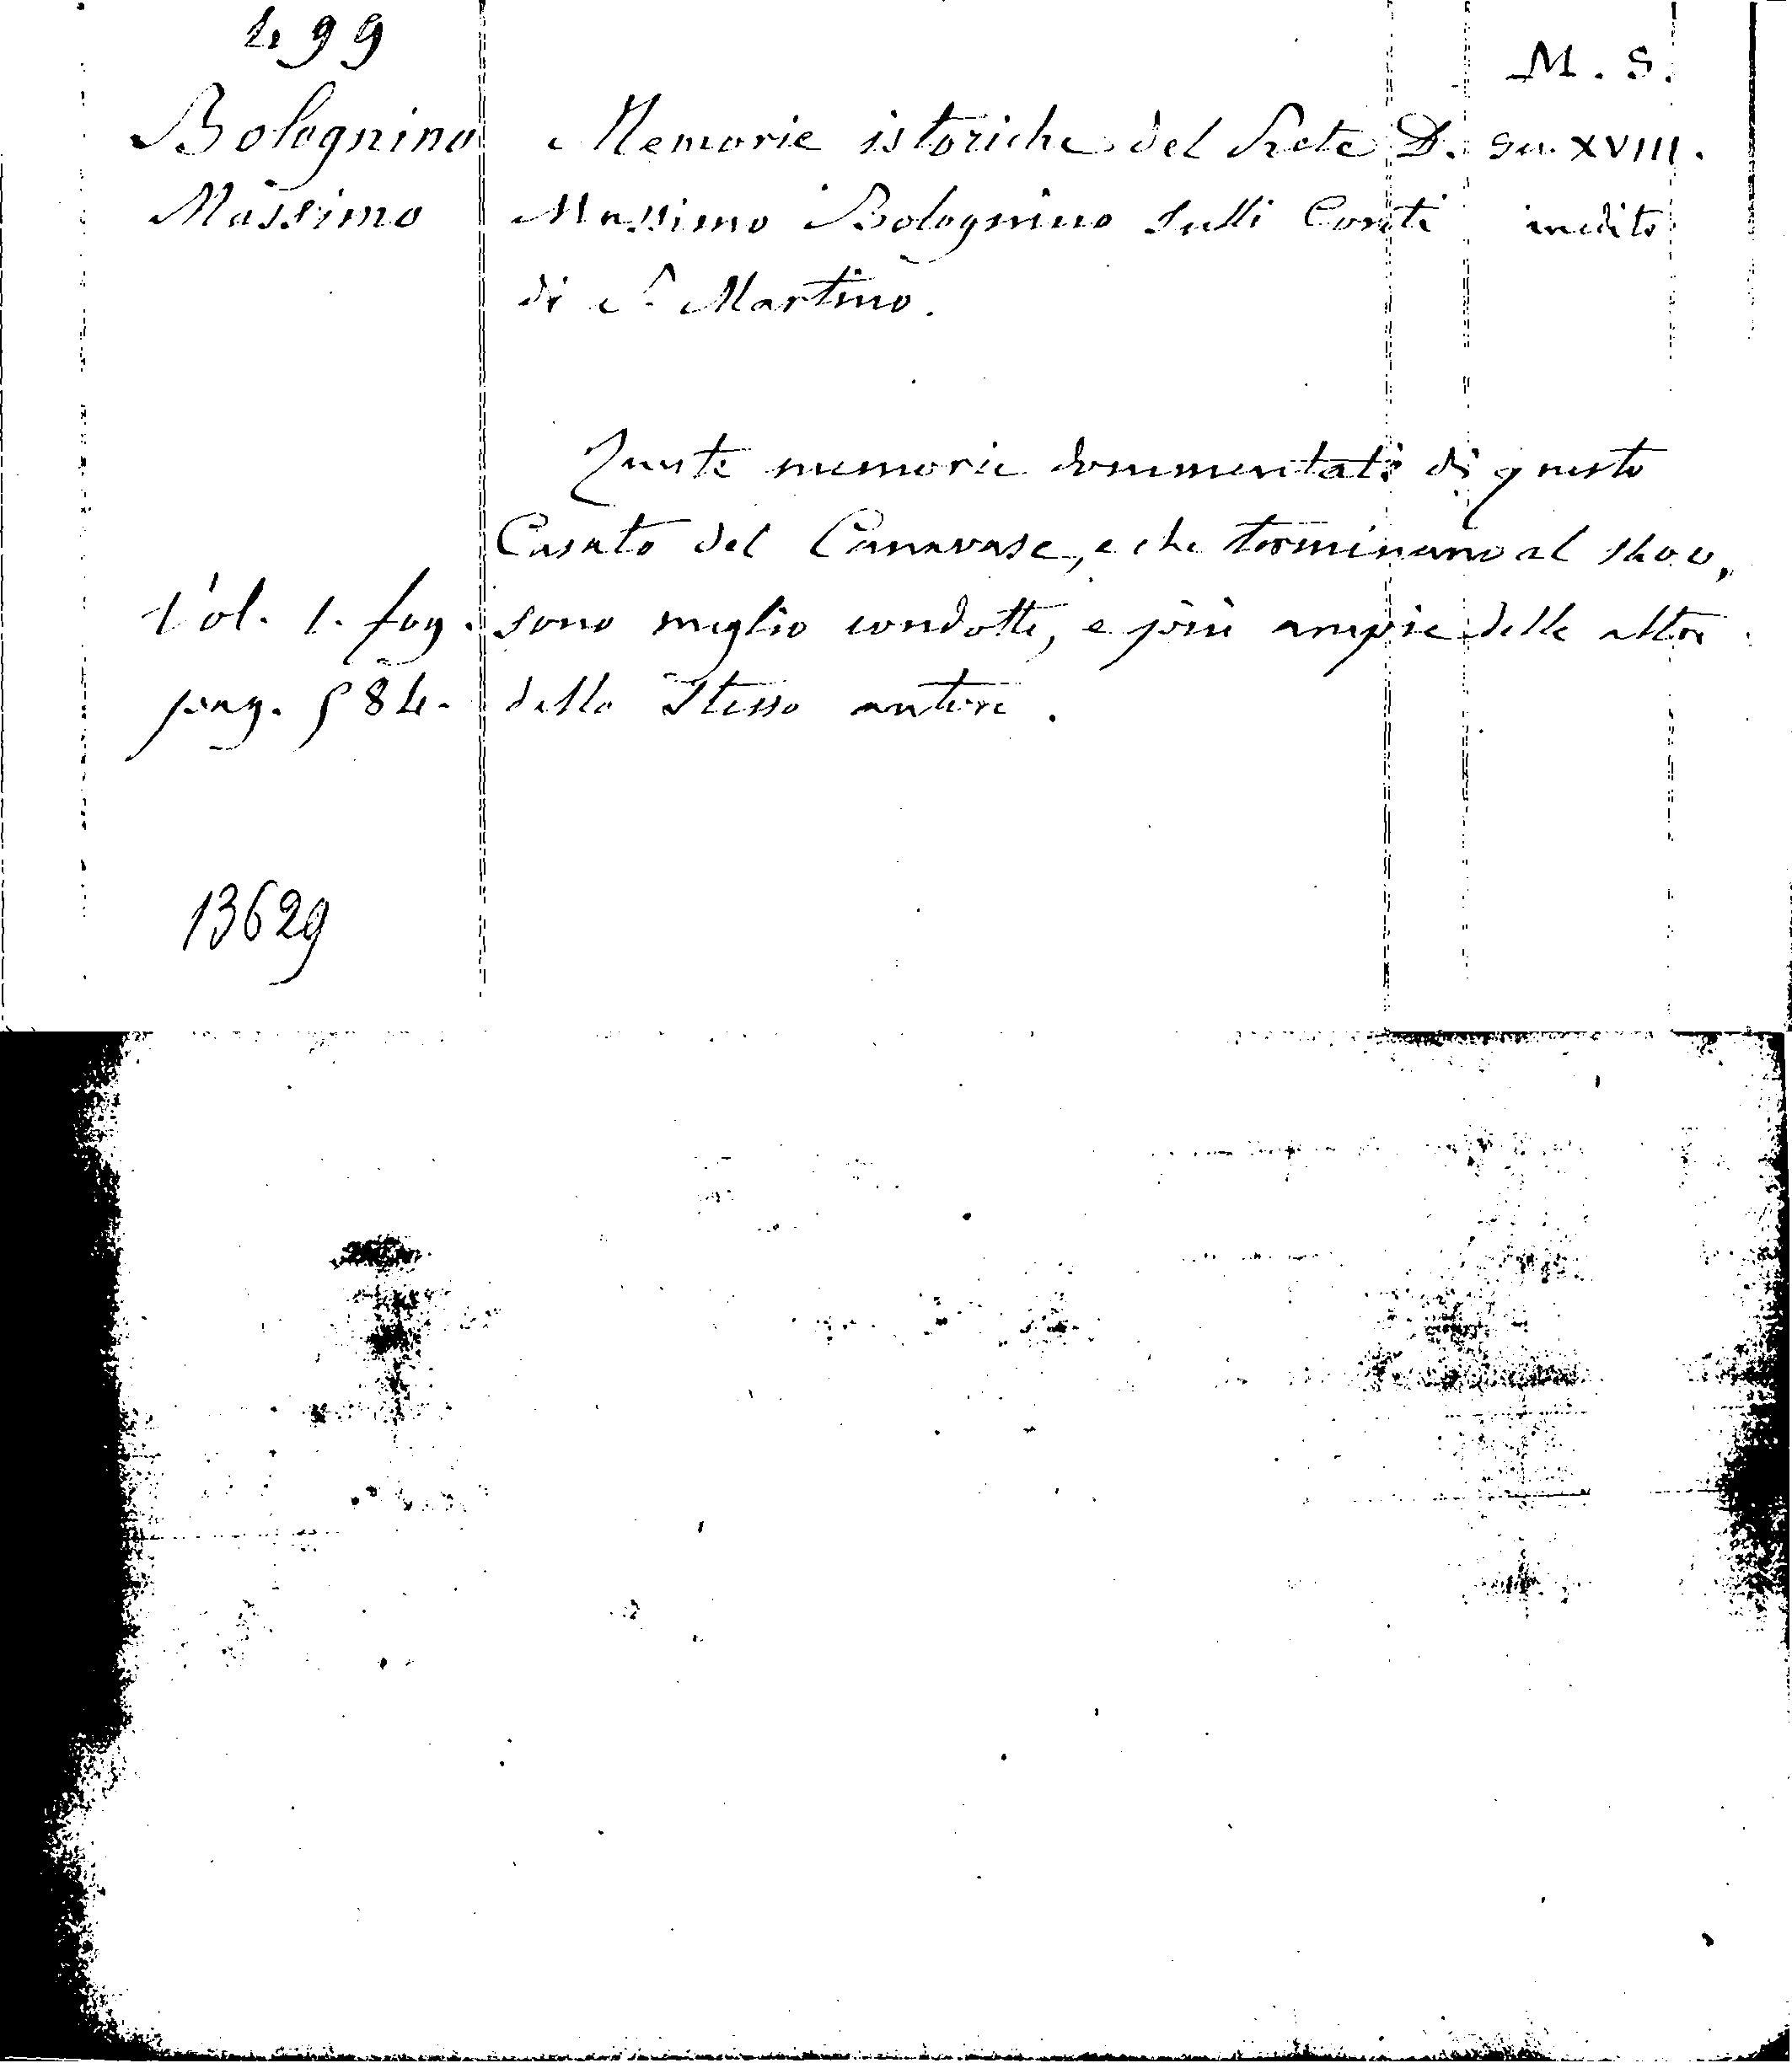 499
M. S.
Bolognino Memorie istoriche del Prete D. sec. XVIII.
Massimo Massimo Bolognino sulli Conti inedito
di S. Martino.
Queste memorie documentate di questo
Casato del Canavase, e che terminano al 1400,
Vol. 1. fog. sono meglio condotte, e più ampie delle altre
pag. 584. dello stesso autore.
13629